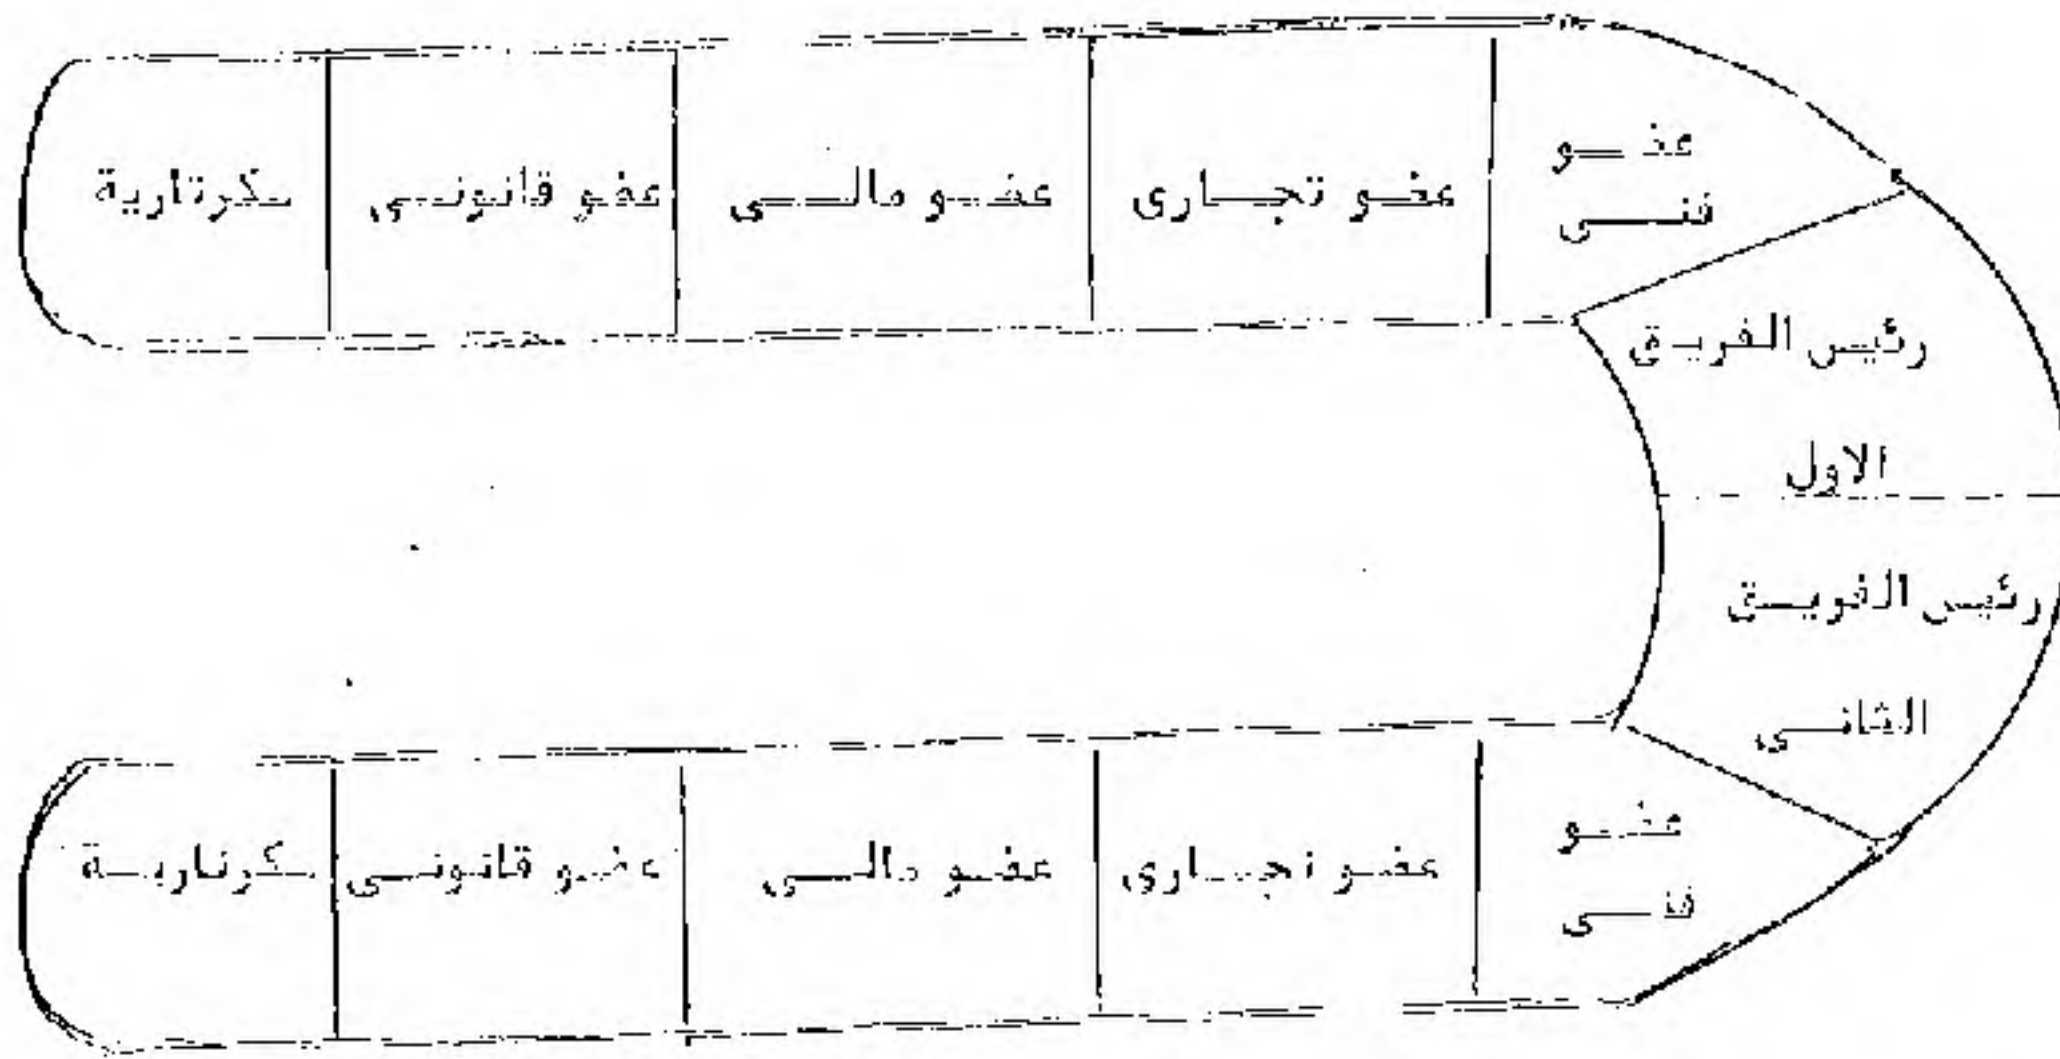 عضو
فنى
عضو تجارى
عضو مالى
عضو قانونى
سكرتارية
رئيس الفريق
الاول
رئيس الفريق
الثانى
عضو
فنى
عضو تجارى
عضو مالى
عضو قانونى
سكرتارية